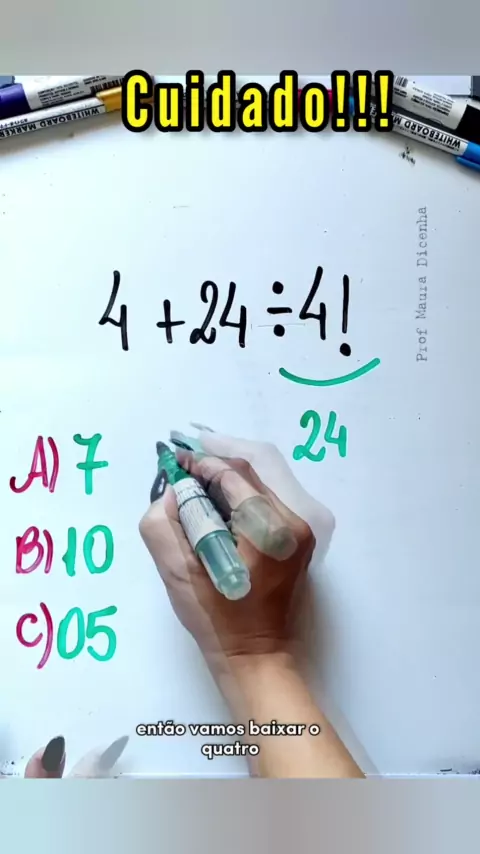 Cuidado!!!
WHITEBOARD MARKER
Prof Maura Dicenha
4 + 24 ÷ 4!
24
A) 7
B) 10
C) 05
então vamos baixar o
quatro